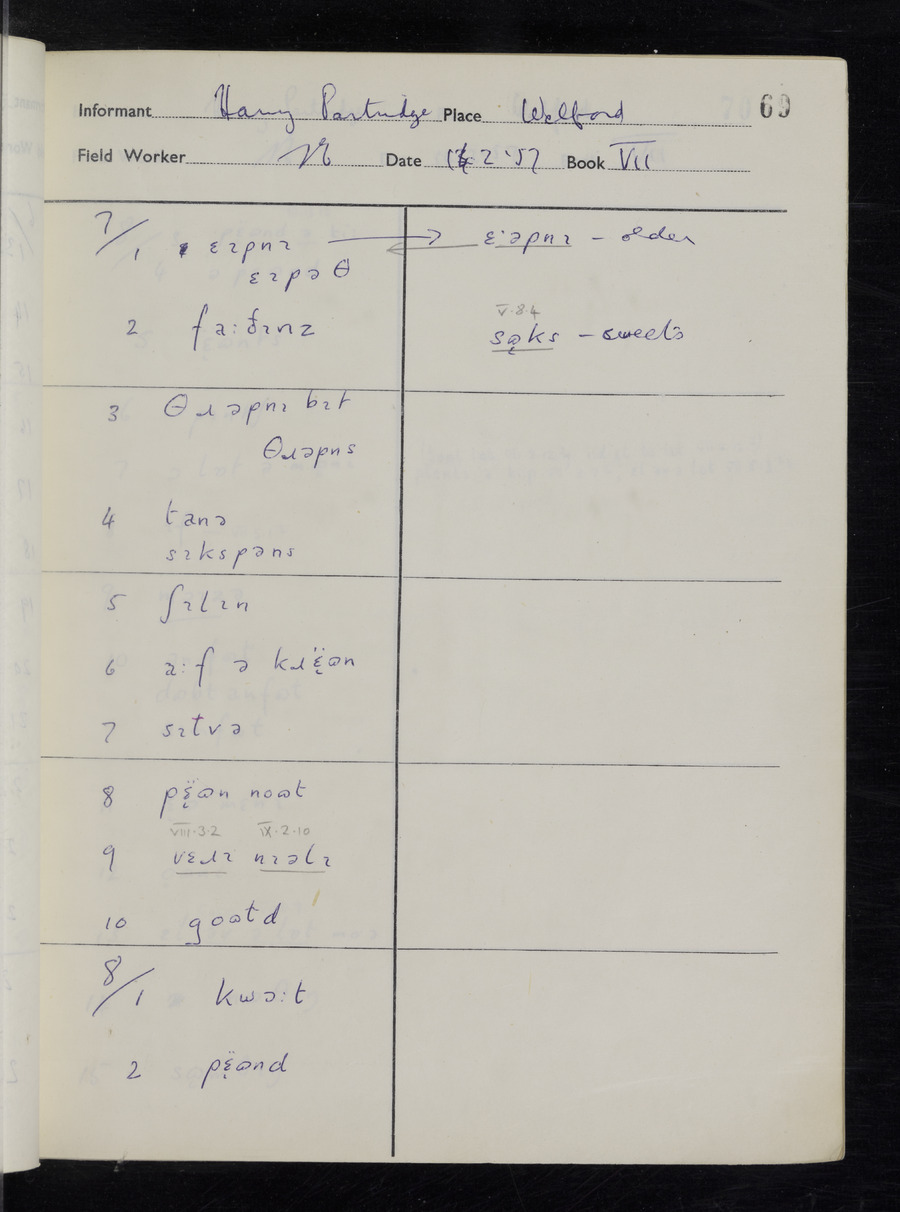 Informant Harry Partridge Place Welford 69
Field Worker Date 2 '57 Book VII
7/1 ɛɪpnɪ → ɛˑəpnɪ – older
ɛɪpəθ
2 fa:ðɪnz
V.8.4
sọks – sweets
3 θɹəpnɪ bɪt
θɹəpns
4 tanə
sɪkspəns
5 ʃɪlɪn
6 a:f ə kɹɛ̈ɷn
7 sɪtvə
8 pɛ̈ɷn noɷt
VIII.3.2 IX.2.10
9 vɛɹɪ nɪəlɪ
10 goɷld
8/1 kwɔ:t
2 pɛ̈ɷnd